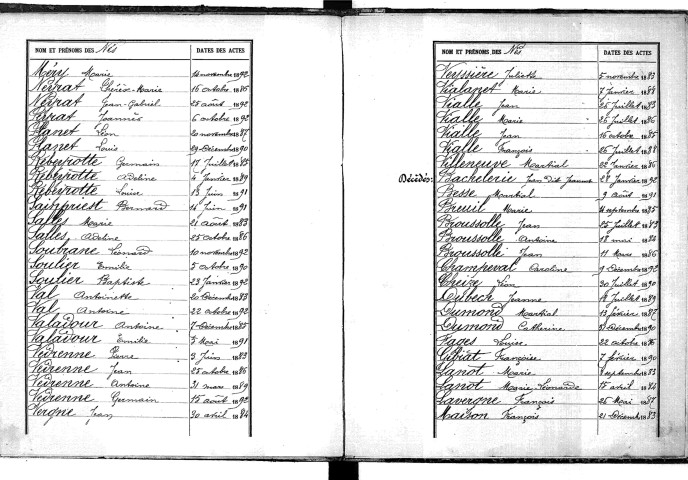 NOM ET PRÉNOMS DES Nés DATES DES ACTES
Méry Marie 14 novembre 1892
Neyrat Thérèse-Marie 16 octobre 1886
Neyrat Jean-Gabriel 25 août 1892
Joannès 6 octobre 1892
Planet Léon 20 novembre 1887
Planet Louis 29 Décembre 1890
Rebeyrotte Germain 11 Juillet 1885
Rebeyrotte Adeline 4 Janvier 1889
Rebeyrotte Louise 18 Juin 1891
Saintpriest Bernard 14 Juin 1891
Salles Marie 21 août 1883
Salles Adeline 25 octobre 1886
Soubrane Léonard 10 novembre 1892
Soulier Emilie 5 octobre 1890
Soulier Baptiste 23 Janvier 1892
Val Antoinette 20 Décembre 1883
Val Antoine 22 octobre 1892
Valadour Antoine 7 Décembre 1885
Valadour Emilie 5 Mai 1891
Védrenne Pierre 3 Juin 1883
Védrenne Jean 25 octobre 1886
Védrenne Antoine 31 mars 1889
Védrenne Germain 15 août 1892
Vergne Jean 30 avril 1884
NOM ET PRÉNOMS DES Nés DATES DES ACTES
Veyssière Juliette 5 novembre 1883
Vialanet Marie 7 Janvier 1888
Vialle Jean 26 Juillet 1883
Vialle Marie 26 Juillet 1886
Vialle Jean 16 octobre 1885
Vialle François 26 Juillet 1888
Villeneuve Martial 22 Janvier 1886
Décédés: Bachelerie Jean Dit Jeannet 28 Janvier 1892
Besse Martial 9 août 1891
Breuil Marie septembre 1885
Broussolle Jean 25 Juillet 1883
Broussolle Antoine 18 mai 1884
Broussolle Jean 11 Mars 1886
Champeval Caroline 9 Décembre 1890
Léon 30 Juillet 1890
Dubech Jeanne Juillet 1889
Dumond Martial 13 février 1887
Dumond Catherine Décembre 1890
Fages Louise 22 octobre 1886
Françoise 7 février 1890
Lanot Marie septembre 1883
Lanot Marie-Léonarde 15 avril 1884
Lavergne François 26 Mai 1887
Maison François 21 Décembre 1883